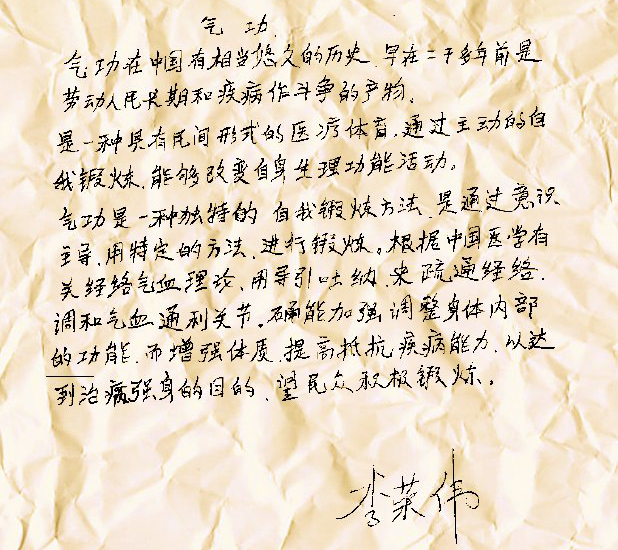 气功
气功在中国有相当悠久的历史,早在二千多年前是
劳动人民长期和疾病作斗争的产物。
是一种具有民间形式的医疗体育,通过主动的自
我锻炼,能够改变自身生理功能活动。
气功是一种独特的自我锻炼方法,是通过意识
主导,用特定的方法,进行锻炼。根据中国医学有
关经络气血理论,用导引吐纳,来疏通经络,
调和气血通利关节。确能加强调整身体内部
的功能,而增强体质,提高抵抗疾病能力,以达
到治病强身的目的,望民众积极锻炼。
李荣伟